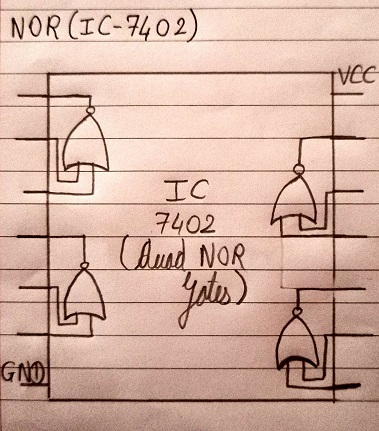 NOR (IC-7402)
VCC
IC
7402
(Quad NOR
Gates)
GND